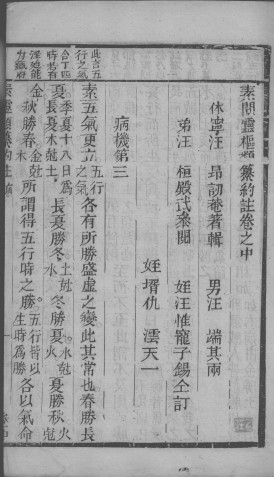 素問靈樞類纂約註卷之中
休寧汪 昂訒菴著輯 男汪 端其兩
弟汪 桓殿武參閱 姪汪惟寵子錫仝訂
姪壻仇 澐天一
病機第三
素五氣更立五行之氣各有所勝盛虛之變此其常也春勝長
夏季夏十八日爲長夏木尅土長夏勝冬土尅水冬勝夏水尅火夏勝秋火尅
金秋勝春金尅木所謂得五行時之勝五行皆以生時爲勝各以氣命
此言五
行之氣
合于四
時若有
淫邪能
内薄府